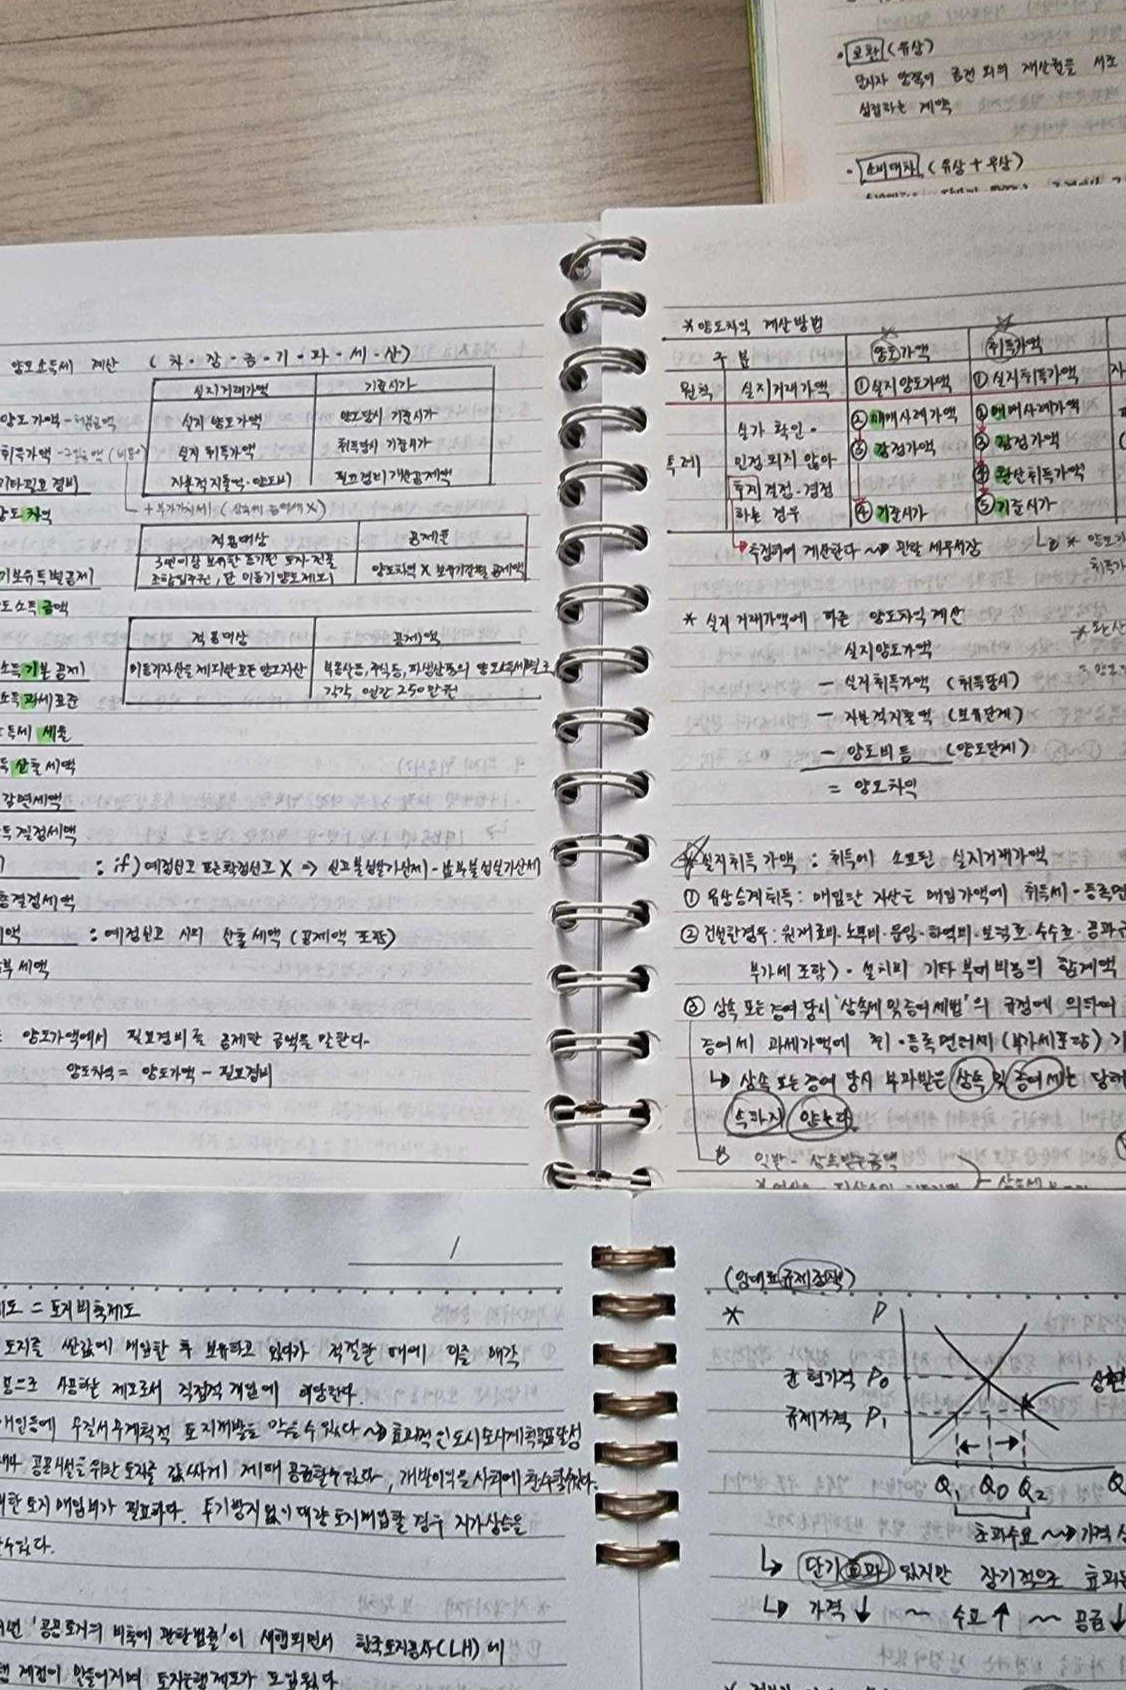 • 교환 (유상)
당사자 양쪽이 금전 외의 재산권을 서로
• 소비대차 (유상 + 무상)
양도소득세 계산 (차·장·금·기·과·세·산)
실지거래가액 기준시가
양도가액 - 실지 양도가액 양도당시 기준시가
취득가액 - 실지 취득가액 취득당시 기준시가
기타필요경비 자본적지출액·양도비 필요경비개산공제액
양도차익
적용대상 공제율
3년이상 보유한 토지·건물
조합원입주권, 단 미등기양도제외 양도차익 X 보유기간별 공제액
기보유특별공제
도소득금액
적용대상 공제액
소득기본공제 미등기자산을 제외한 모든 양도자산 부동산등, 주식등, 파생상품의 양도소득세별로
각각 연간 250만원
소득과세표준
득세 세율
득 산출세액
감면세액
득결정세액
: if) 예정신고 또는 확정신고 X => 신고불성실가산세·납부불성실가산세
총결정세액
액 : 예정신고 시의 산출세액 (공제액 포함)
부세액
양도가액에서 필요경비를 공제한 금액을 말한다.
양도차익 = 양도가액 - 필요경비
* 양도차익 계산방법
구분 양도가액 취득가액
원칙 실지거래가액 ① 실지양도가액 ① 실지취득가액
특례 실가 확인· ② 매매사례가액 ② 매매사례가액
인정되지 않아 ③ 감정가액 ③ 감정가액
추계결정·경정 ④ 환산취득가액
하는 경우 ④ 기준시가 ⑤ 기준시가
추정하여 계산한다 ~> 관할 세무서장
* 실지거래가액에 따른 양도차익 계산
실지양도가액
- 실지취득가액 (취득당시)
- 자본적지출액 (보유단계)
- 양도비등 (양도단계)
= 양도차익
실지취득가액 : 취득에 소요된 실지거래가액
① 유상승계취득 : 매입한 자산은 매입가액에 취득세·등록면
② 건설한경우 : 원재료비·노무비·운임·하역비·보험료·수수료·공과금
부가세 포함)·설치비 기타 부대비용의 합계액
③ 상속 또는 증여 당시 '상속세 및 증여세법'의 규정에 의하여
증여세 과세가액에 취·등록면허세 (부가세포함) 기
↳ 상속 또는 증여 당시 부과받은 상속 및 증여세는 당해
속하지 않는다.
일반 - 상속받은금액
/
제도 = 토지비축제도
토지를 싼값에 매입한 후 보유하고 있다가 적절한 때에 이를 매각
용으로 사용하는 제도로서 직접적 개입에 해당한다.
개인등에 무질서 무계획적 토지개발을 막을수있다 ~> 효과적인도시도시계획목표달성
공공시설을위한 토지를 값싸게 제때 공급할수있으며, 개발이익을 사회에 환수할수있다.
대한 토지매입비가 필요하다. 투기방지없이 대량 토지매입할 경우 지가상승을
수있다.
'공공토지의 비축에 관한법률'이 시행되면서 한국토지공사(LH)에
행 계정이 만들어지며 토지은행제도가 도입됐다
(임대료규제정책)
* P
균형가격 P₀
규제가격 P₁
Q₁ Q₀ Q₂ Q
초과수요 ~> 가격
↳ 단기효과 있지만 장기적으로 효과
↳ 가격 ↓ ~ 수요 ↑ ~ 공급 ↓